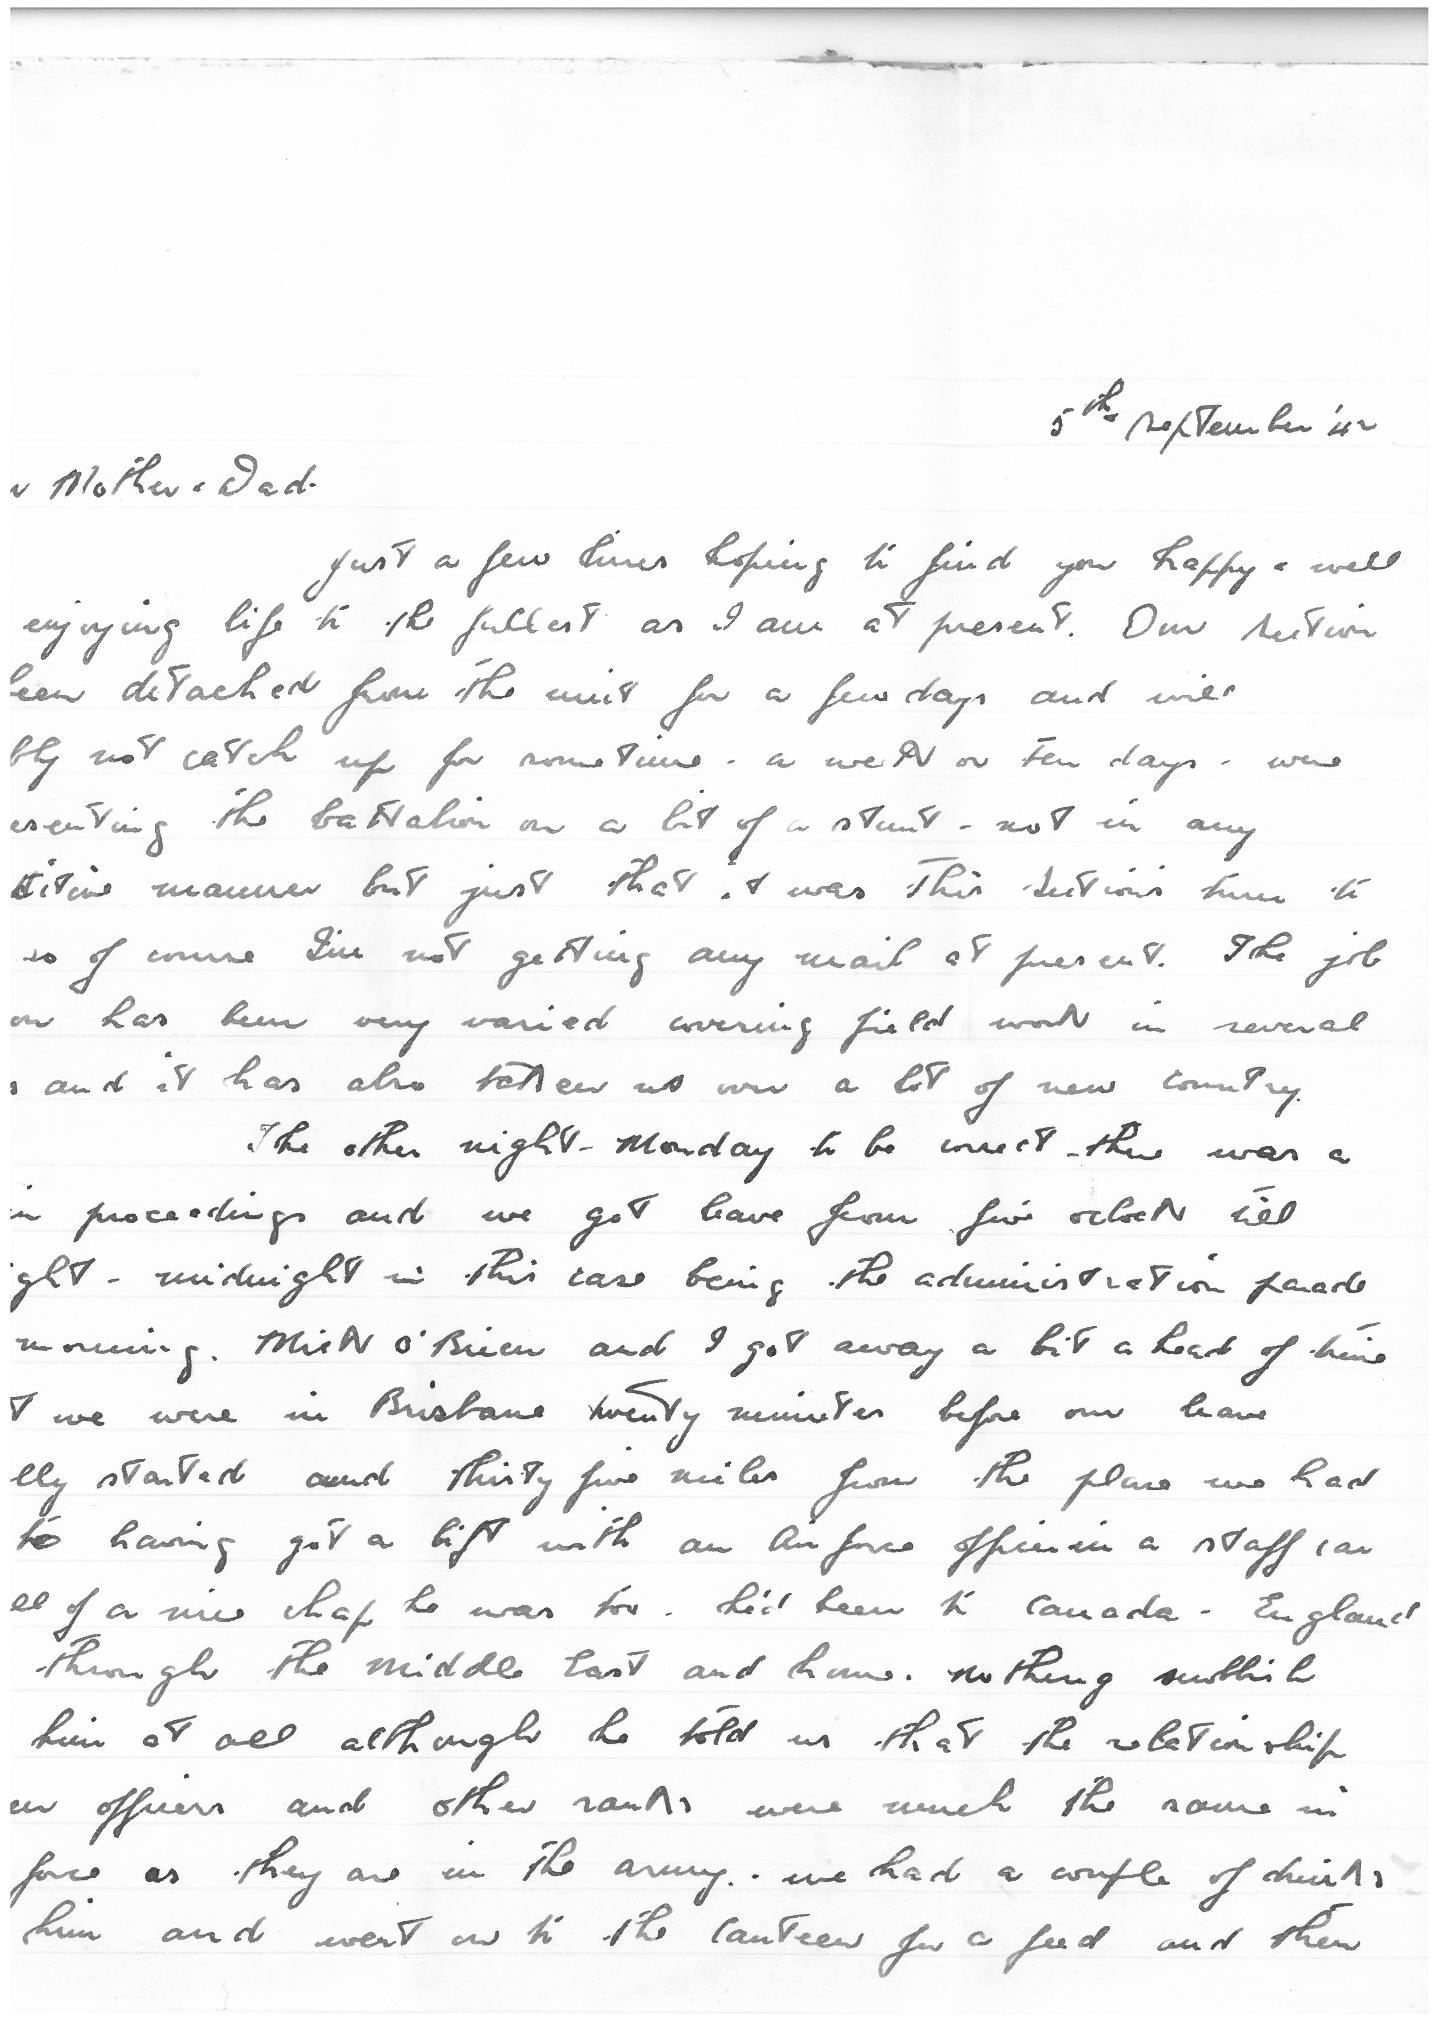 5th September '42
r Mother & Dad.
Just a few lines hoping to find you happy & well
enjoying life to the fullest as I am at present. Our section
been detached from the unit for a few days and will
bly not catch up for sometime - a week or ten days - were
esenting the battalion on a bit of a stunt - not in any
titive manner but just that it was this sections turn to
so of course I'm not getting any mail at present. The job
on has been very varied covering field work in several
s and it has also taken us over a lot of new country.
The other night - Monday to be correct - there was a
in proceedings and we got leave from five oclock till
ight - midnight in this case being the administration parade
morning. Mick O'Brien and I got away a bit ahead of time
t we were in Brisbane twenty minutes before our leave
lly started and thirty five miles from the place we had
to having got a lift with an Air force officer in a staff car
ll of a nice chap he was too. he'd been to Canada - England
through the Middle East and home. nothing snobbish
him at all although he told us that the relationship
en officers and other ranks were much the same in
force as they are in the army. we had a couple of drinks
him and went on to the Canteen for a feed and then